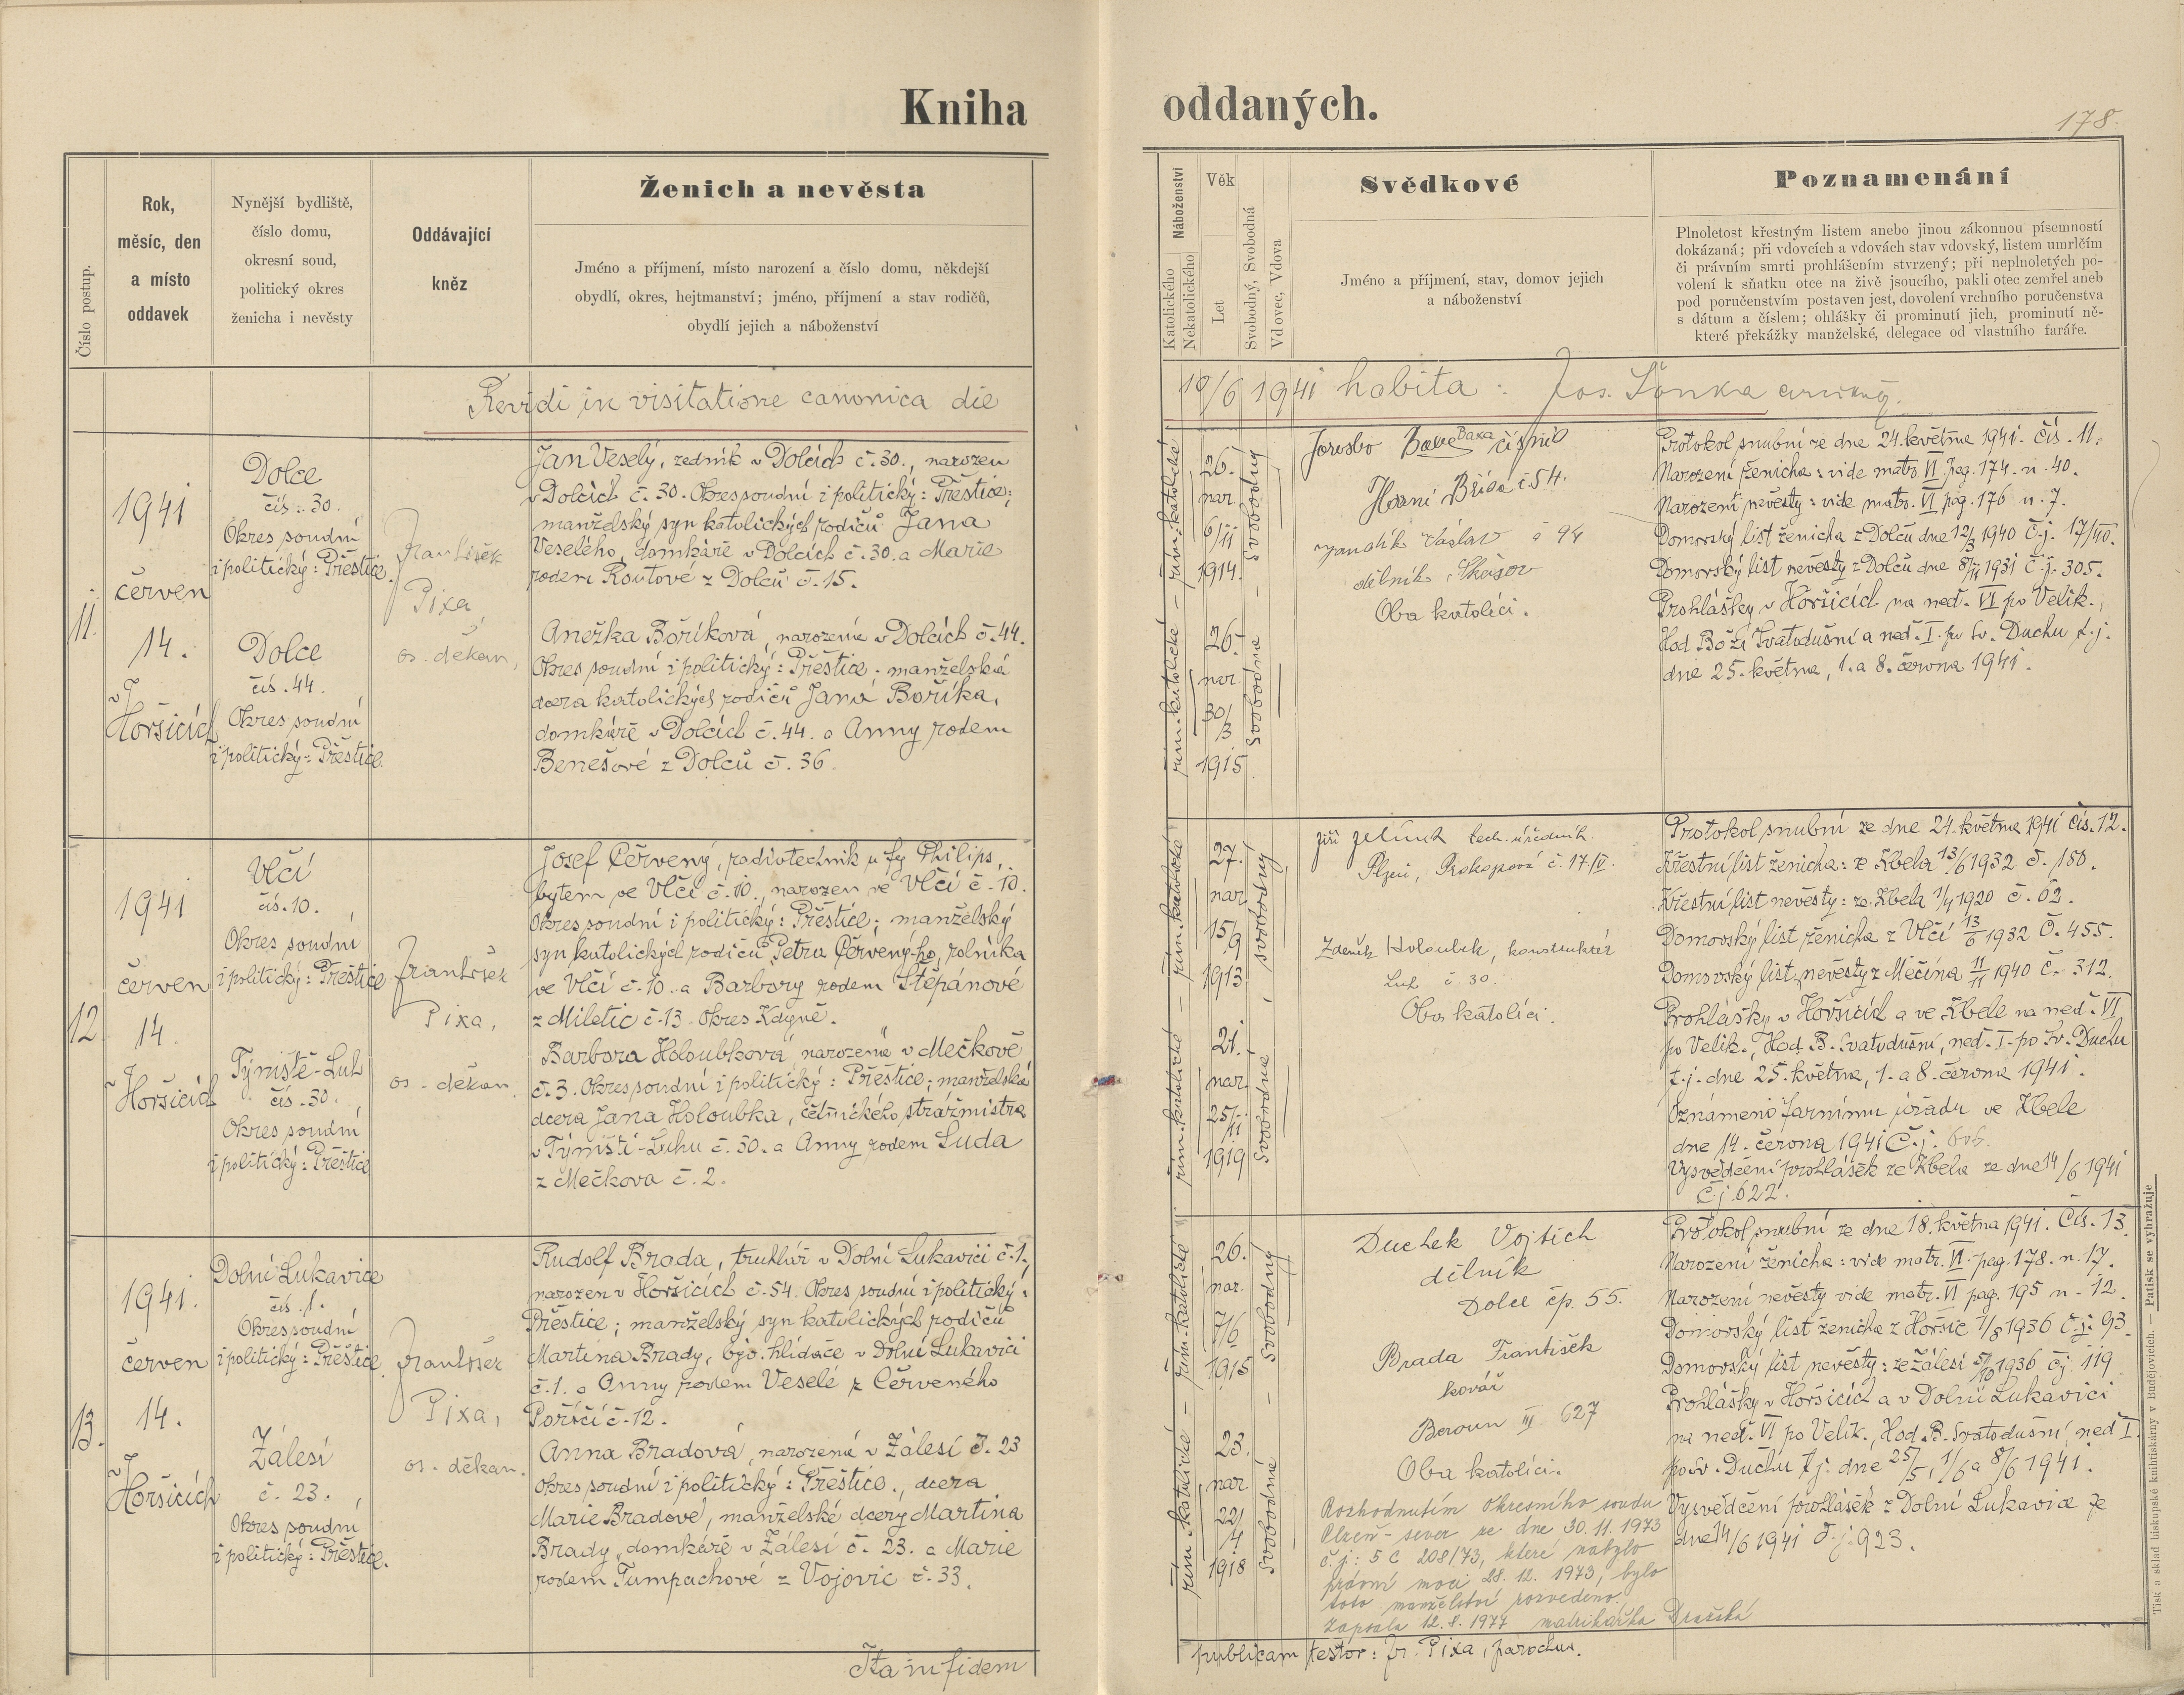 Kniha oddaných.
178.
Číslo postup.
Rok,
měsíc, den
a místo
oddavek
Nynější bydliště,
číslo domu,
okresní soud,
politický okres
ženicha i nevěsty
Oddávající
kněz
Ženich a nevěsta
Jméno a příjmení, místo narození a číslo domu, někdejší
obydlí, okres, hejtmanství; jméno, příjmení a stav rodičů,
obydlí jejich a náboženství
Náboženství
Katolického
Nekatolického
Věk
Let
Svobodný, Svobodná
Vdovec, Vdova
Svědkové
Jméno a příjmení, stav, domov jejich
a náboženství
Poznamenání
Plnoletost křestným listem anebo jinou zákonnou písemností
dokázaná; při vdovcích a vdovách stav vdovský, listem umrlčím
či právním smrti prohlášením stvrzený; při neplnoletých po-
volení k sňatku otce na živě jsoucího, pakli otec zemřel aneb
pod poručenstvím postaven jest, dovolení vrchního poručenstva
s dátum a číslem; ohlášky či prominutí jich, prominutí ně-
které překážky manželské, delegace od vlastního faráře.
Revidi in visitatione canonica die 10/6 1941 habita: Jos. Šonka
11.
1941
červen
14.
v
Hořsicích
Dolce
čís. 30.
Okres soudní
i politický: Přeštice.
Dolce
čís. 44.
Okres soudní
i politický: Přeštice.
František
Pixa,
os. děkan,
Jan Veselý, zedník v Dolcích č. 30., narozen
v Dolcích č. 30. Okres soudní i politický: Přeštice;
manželský syn katolických rodičů Jana
Veselého, domkáře v Dolcích č. 30. a Marie
rodem Routové z Dolců č. 15.
Anežka Boříková, narozená v Dolcích č. 44.
Okres soudní i politický: Přeštice; manželská
dcera katolických rodičů Jana Boříka,
domkáře v Dolcích č. 44. a Anny rodem
Benešové z Dolců č. 36.
řím. katolické - řím. katolické
26.
nar.
6/11
1914.
26.
nar.
30/3
1915.
Svobodný - Svobodná
Baxa
Horní č 54.
Václav č 94
dělník
Oba katolíci.
Protokol snubní ze dne 24. května 1941. čís. 11.
Narození ženicha: vide matr. VI pag. 174. n. 40.
Narození nevěsty: vide matr. VI pag. 176 n. 7.
Domovský list ženicha z Dolců dne 12/3 1940 č.j. 17/40.
Domovský list nevěsty z Dolců dne 8/11 1931 č.j. 305.
Prohlášky v Hořsicích na neď. VI po Velik.,
Hod Boží Svatodušní a neď. I. po Sv. Duchu t.j.
dne 25. května, 1. a 8. června 1941.
12.
1941
červen
14.
v
Hořsicích
Vlčí
čís. 10.
Okres soudní
i politický: Přeštice
Týniště-Luh
čís. 30.
Okres soudní
i politický: Přeštice
František
Pixa,
os. děkan.
Josef Červený, radiotechnik u fy Philips,
bytem ve Vlčí č. 10., narozen ve Vlčí č. 10.
Okres soudní i politický: Přeštice; manželský
syn katolických rodičů Petra Červený-ho, rolníka
ve Vlčí č. 10. a Barbory rodem Štěpánové
z Miletic č. 13 Okres Kdyně.
Barbora Holoubková, narozená v Mečkově
č. 3. Okres soudní i politický: Přeštice; manželská
dcera Jana Holoubka, četnického strážmistra
v Týništi-Luhu č. 30. a Anny rodem Luda
z Mečkova č. 2.
řím. katolické - řím. katolické
27.
nar.
15/9
1913
21.
nar.
25/11
1919
svobodný - svobodná
Jiří Jelínek tech. úředník.
Plzeň, Prokopová č. 17/IV.
Zdeněk Holoubek, konstruktér
Luh č. 30.
Oba katolíci.
Protokol snubní ze dne 24. května 1941 čís. 12.
Křestní list ženicha: ze Zbela 13/6 1932 č. 180.
Křestní list nevěsty: ze Zbela 1/4 1920 č. 62.
Domovský list ženicha z Vlčí 13/6 1932 č. 455.
Domovský list nevěsty z Měčína 11/11 1940 č. 312.
Prohlášky v Hořsicích a ve Zbele na neď. VI
po Velik., Hod. B. Svatodušní, neď. I. po Sv. Duchu
t.j. dne 25. května, 1. a 8. června 1941.
Oznámeno farnímu úřadu ve Zbele
dne 14. června 1941 č.j.
Vysvědčení prohlášek ze Zbela ze dne 14/6 1941
č.j. 622.
13.
1941.
červen
14.
v
Hořsicích
Dolní Lukavice
čís. 1.
Okres soudní
i politický: Přeštice
Zálesí
č. 23.
Okres soudní
i politický: Přeštice.
František
Pixa,
os. děkan.
Rudolf Brada, truhlář v Dolní Lukavici č. 1.,
narozen v Hořsicích č. 54. Okres soudní i politický:
Přeštice; manželský syn katolických rodičů
Martina Brady, býv. hlídače v Dolní Lukavici
č. 1. a Anny rodem Veselé z Červeného
Poříčí č. 12.
Anna Bradová, narozená v Zálesí č. 23
okres soudní i politický: Přeštice., dcera
Marie Bradové, manželské dcery Martina
Brady, domkáře v Zálesí č. 23. a Marie
rodem Tumpachové z Vojovic č. 33.
řím. katolické - řím. katolické
26.
nar.
7/6
1915
23.
nar.
22/4
1918
Svobodný - Svobodná
Duchek Vojtěch
dělník
Dolce čp. 55.
Brada František
kovář
Beroun III. 627
Oba katolíci.
Rozhodnutím Okresního soudu
Plzeň-sever ze dne 30.11.1973
č.j.: 5 C 208/73, které nabylo
právní moci 28.12.1973, bylo
toto manželství rozvedeno.
Zapsala 12.8.1977 matrikářka
Protokol snubní ze dne 18. května 1941. Čís. 13.
Narození ženicha: vide matr. VI. pag. 178. n. 17.
Narození nevěsty vide matr. VI pag. 195 n. 12.
Domovský list ženicha z Hořsic 7/8 1936 č.j. 93.
Domovský list nevěsty: ze Zálesí 5/10 1936 čj. 119
Prohlášky v Hořsicích a v Dolní Lukavici
na neď. VI po Velik., Hod. B. Svatodušní, neď I.
po Sv. Duchu t.j. dne 25/5, 1/6 a 8/6 1941.
Vysvědčení prohlášek z Dolní Lukavice ze
dne 14/6 1941 č.j. 923.
Ita in fidem publicam testor: Fr. Pixa, parochus.
Tisk a sklad biskupské knihtiskárny v Budějovicích. — Patisk se vyhražuje